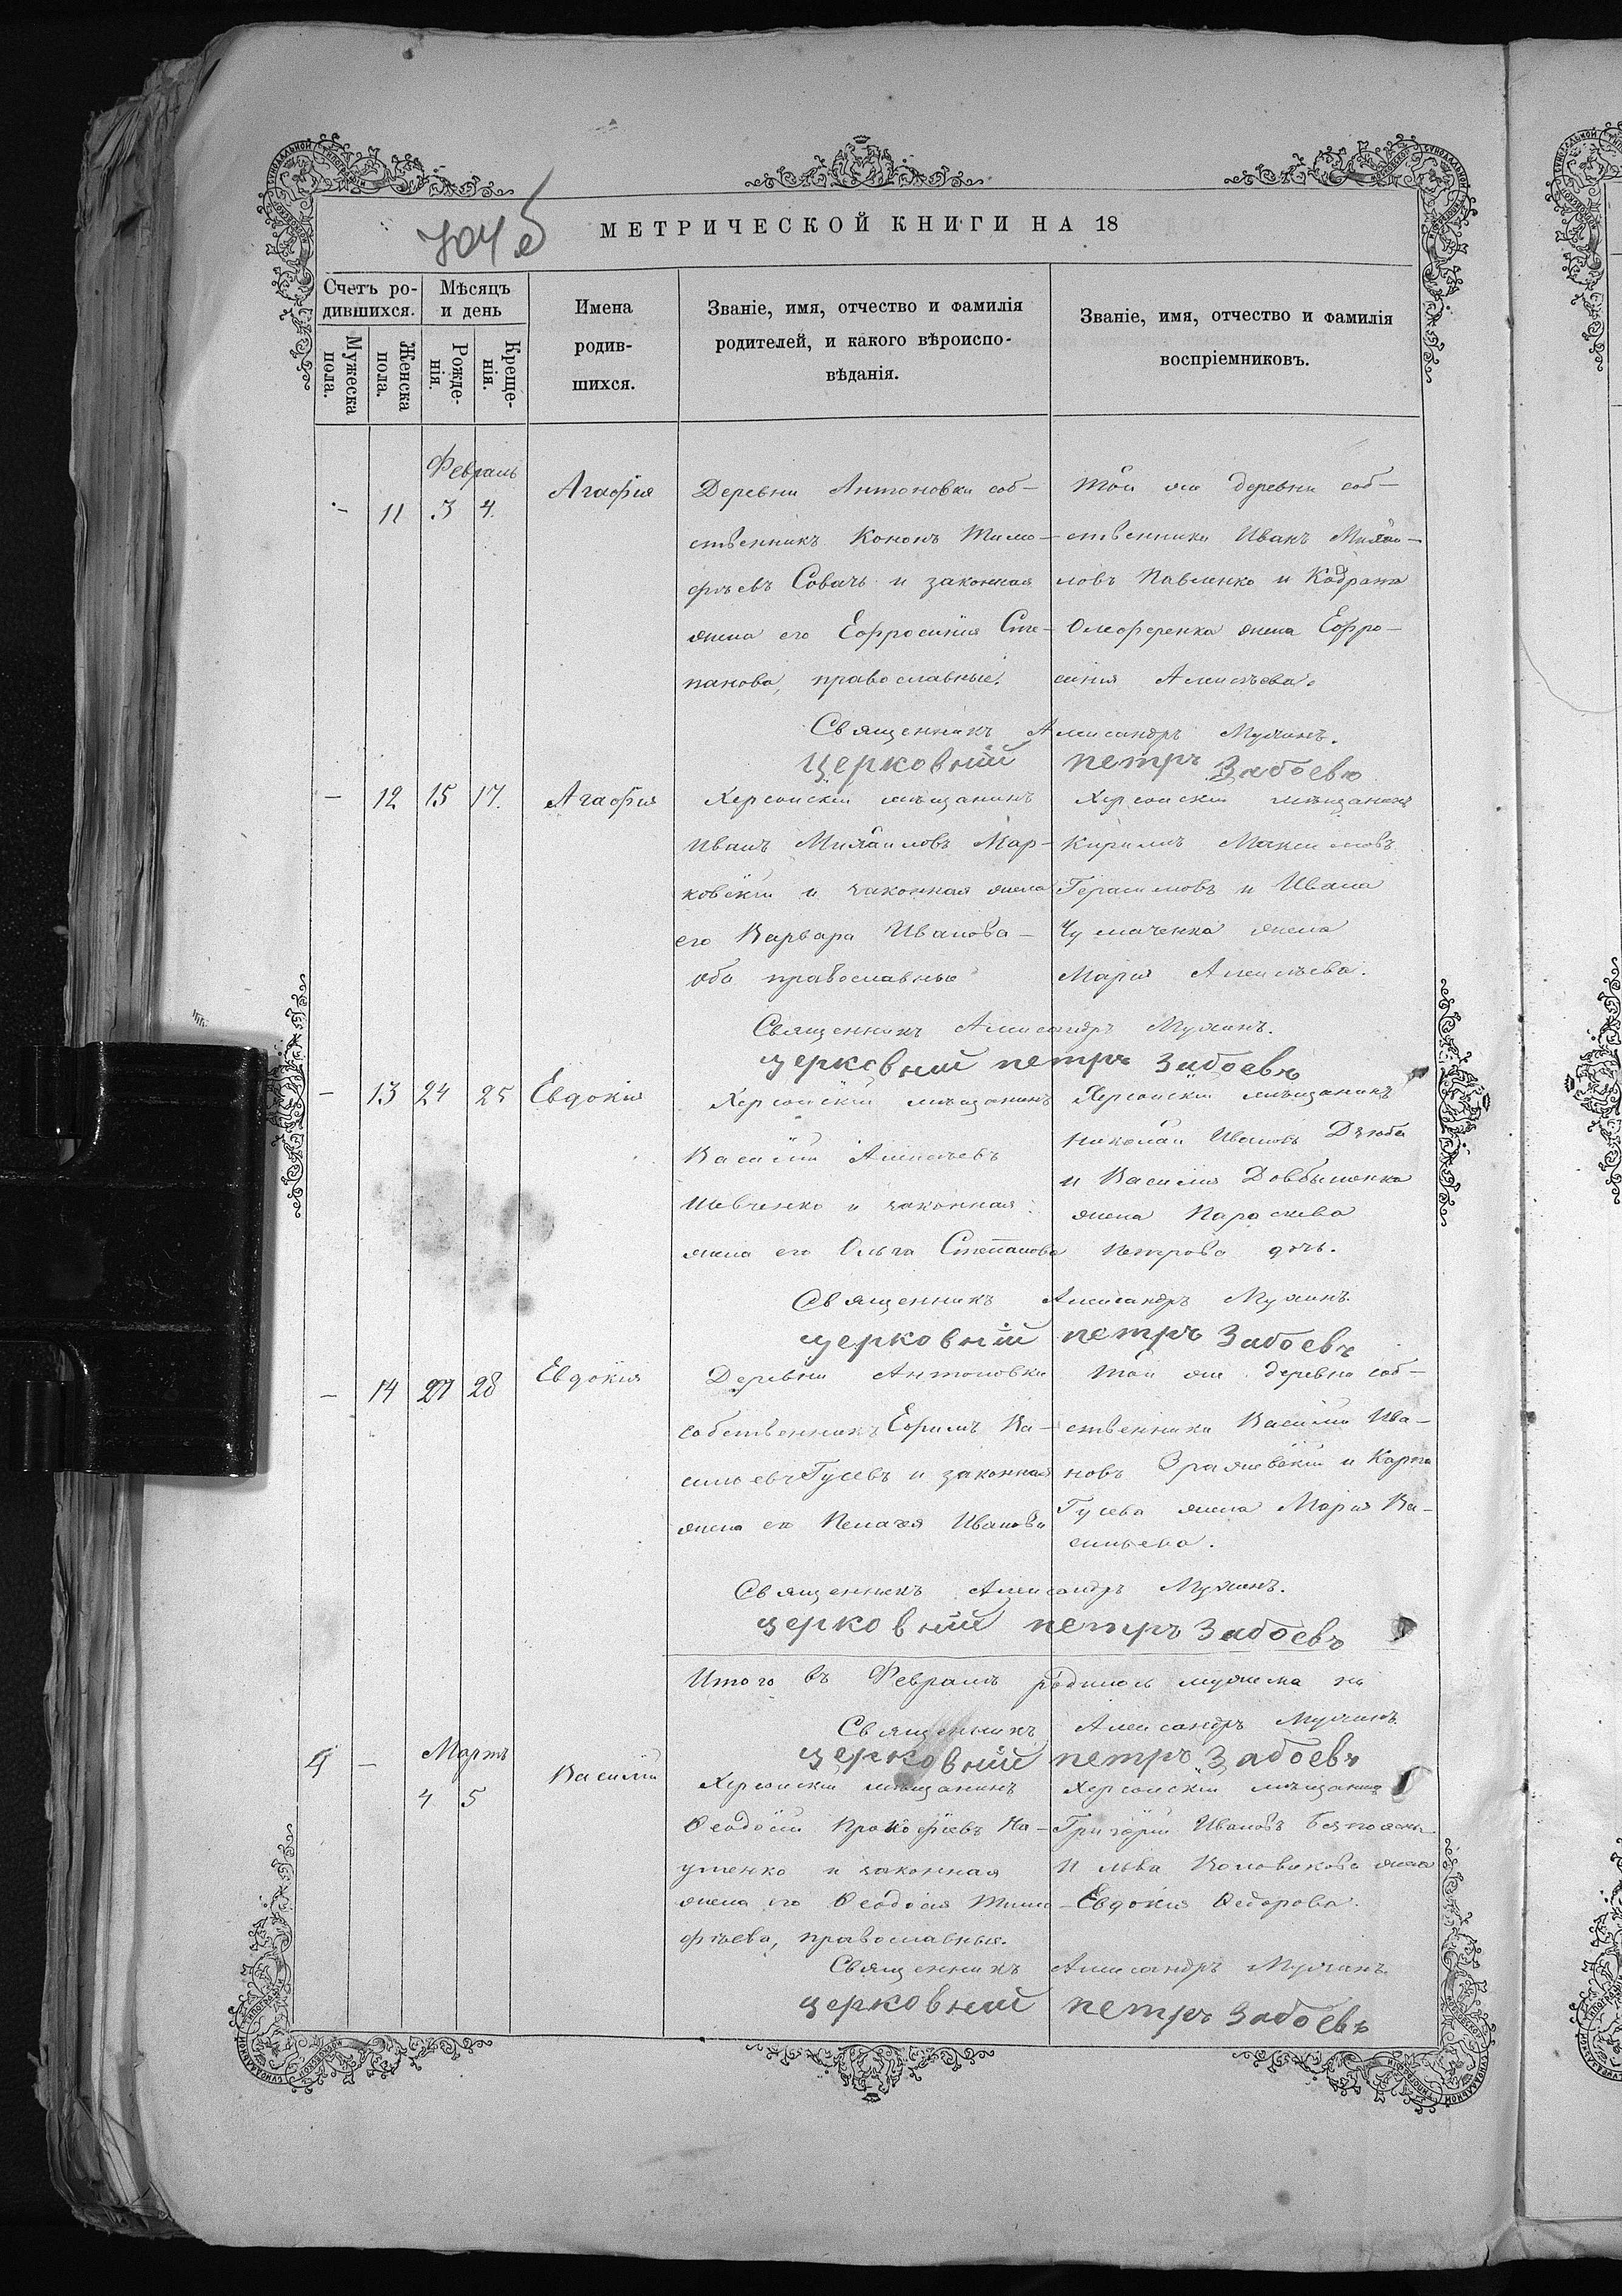 704 б
МЕТРИЧЕСКОЙ КНИГИ НА 18
Счетъ ро-
дившихся.
Мужеска
пола.
Женска
пола.
Мѣсяцъ
и день
Рожде-
нія.
Креще-
нія.
Имена
родив-
шихся.
Званіе, имя, отчество и фамилія
родителей, и какого вѣроиспо-
вѣданія.
Званіе, имя, отчество и фамилія
воспріемниковъ.
Февраль
- 11 3 4. Агафія
Деревни Антоновки соб-
ственникъ Кононъ Тимо-
фѣевъ Совачь и законная
жена его Ефросинія Сте-
панова, православные.
Той же деревни соб-
ственники Иванъ Михаи-
ловъ Павленко и
жена Ефро-
синія Алексѣева.
Священникъ Александръ Мухинъ.
Церковній петръ Забоевъ
- 12 15 17. Агафія
Херсонскій мѣщанинъ
Иванъ Михаиловъ Мар-
ковскій и законная жена
его Варвара Иванова -
оба православные
Херсонскій мѣщанинъ
Кирилъ Максимовъ
Герасимовъ и Ивана
Чумаченка жена
Марія Алексѣева.
Священникъ Александръ Мухинъ.
церковній петръ Забоевъ
- 13 24 25 Евдокія
Херсонскій мѣщанинъ
Василій Алексѣевъ
Шевченко и законная
жена его Ольга Степанова
Херсонскій мѣщанинъ
Николай Ивановъ Дзюба
и Василія Довбышенка
жена Параскева
Петрова дочь.
Священникъ Александръ Мухинъ.
церковній петръ Забоевъ
- 14 27 28 Евдокія
Деревни Антоновки
собственникъ Ефимъ Ва-
сильевъ Гусевъ и законная
жена его Пелагея Иванова
Той же деревни соб-
ственники Василій Ива-
новъ и Карпа
Гусева жена Марія Ва-
сильева.
Священникъ Александръ Мухинъ.
церковній петръ Забоевъ
Итого въ Февралѣ родилось мужеска
Священникъ Александръ Мухинъ
церковній петръ Забоевъ
Мартъ
4 - 4 5 Василій
Херсонскій мѣщанинъ
Ѳеодосій Прокофіевъ На-
уменко и законная
жена его Ѳеодосія Тимо-
фѣева, православные.
Херсонскій мѣщанинъ
Григорій Ивановъ
и Льва жена
Евдокія Ѳедорова.
Священникъ Александръ Мухинъ
церковній петръ Забоевъ